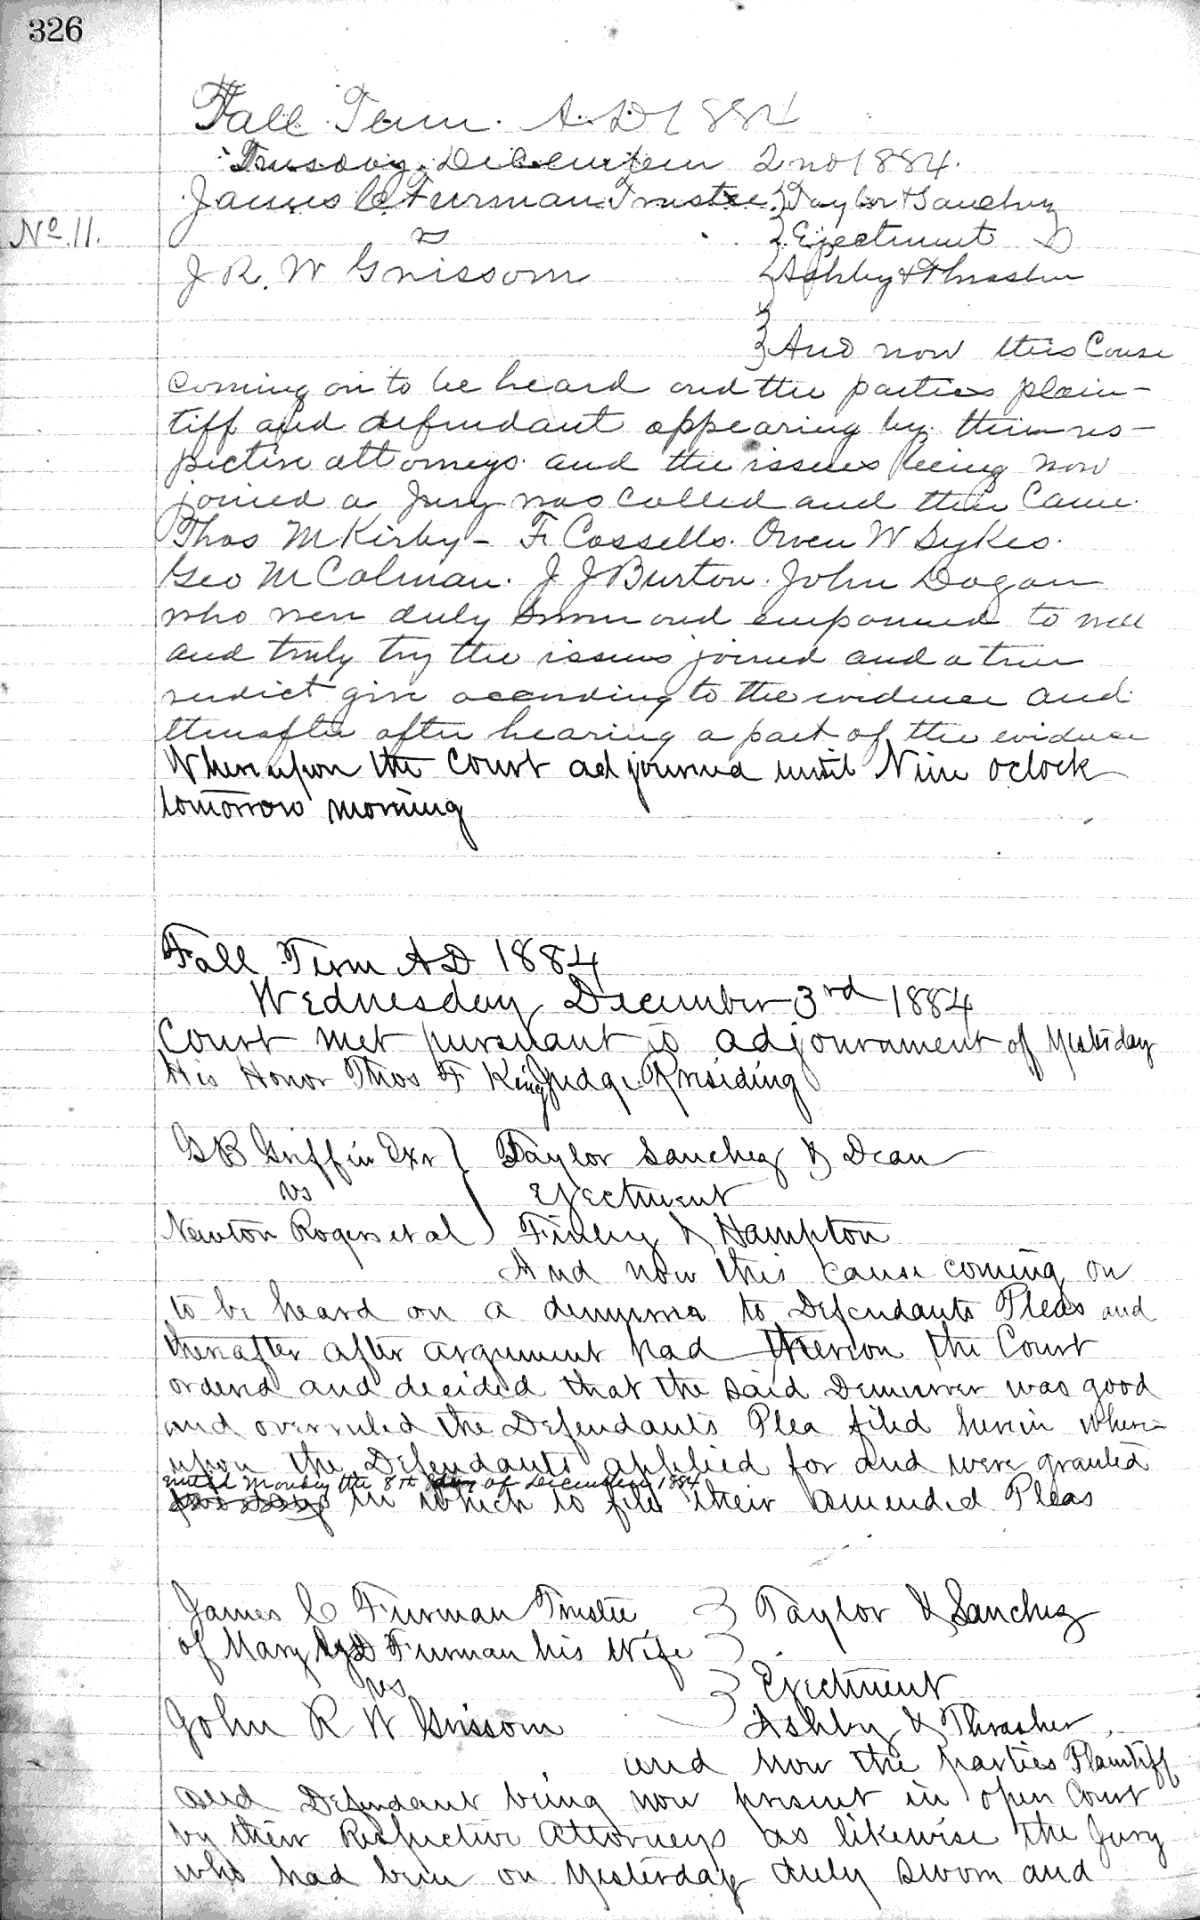 326
Fall Term. A.D. 1884
Tuesday December 2nd 1884.
James C Furman Trustee } Taylor & Sanchez
No. 11. vs } Ejectment
J R. W Grissom } Ashby & Thrasher
} And now this Cause
coming on to be heard and the parties plain-
tiff and defendant appearing by their res-
pective attorneys and the issues being now
joined a jury was called and then Came
Thos M Kirby - F. Cassells. Owen W Sykes.
Geo M Colman. J J Burton. John Dogan
who were duly sworn and empanned to well
and truly try the issues joined and a true
verdict give according to the evidence and
thereafter after hearing a part of the evidence
Whereupon the Court adjourned until Nine oclock
tomorrow morning
Fall Term AD 1884
Wednesday December 3rd 1884
Court met pursuant to adjournment of Yesterday
His Honor Thos F King Judge Presiding
G B Griffin Exr } Taylor Sanchez & Dean
vs } Ejectment
Newton Rogers et al } Finley & Hampton
And now this cause coming on
to be heard on a demurrer to Defendants Pleas and
thereafter after argument had thereon the Court
ordered and decided that the said Demurrer was good
and overruled the Defendants Plea filed herein where-
upon the Defendants applied for and were granted
until Monday the 8th day of December 1884
in which to file their amended Pleas
James C Furman Trustee } Taylor & Sanchez
of Mary Furman his Wife }
vs } Ejectment
John R W Grissom } Ashby & Thrasher
and now the parties Plaintiff
and Defendant being now present in open Court
by their Respective Attorneys as likewise the Jury
who had been on Yesterday duly sworn and